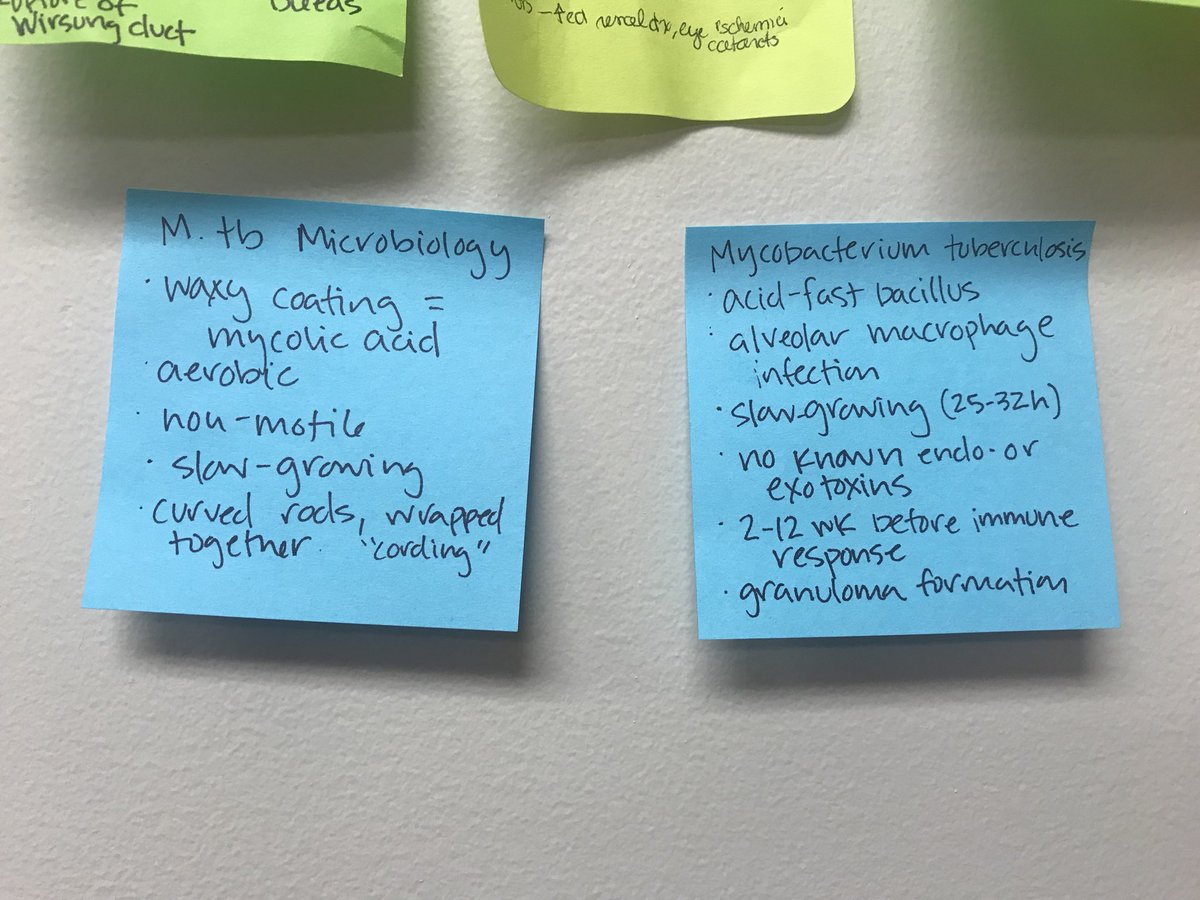 Wirsung duct
renal dx, eye ischemia
cataracts
M. tb Microbiology
· waxy coating =
mycolic acid
· aerobic
· non-motile
· slow-growing
· curved rods, wrapped
together "cording"
Mycobacterium tuberculosis
· acid-fast bacillus
· alveolar macrophage
infection
· slow-growing (25-32h)
· no known endo- or
exotoxins
· 2-12 wk before immune
response
· granuloma formation